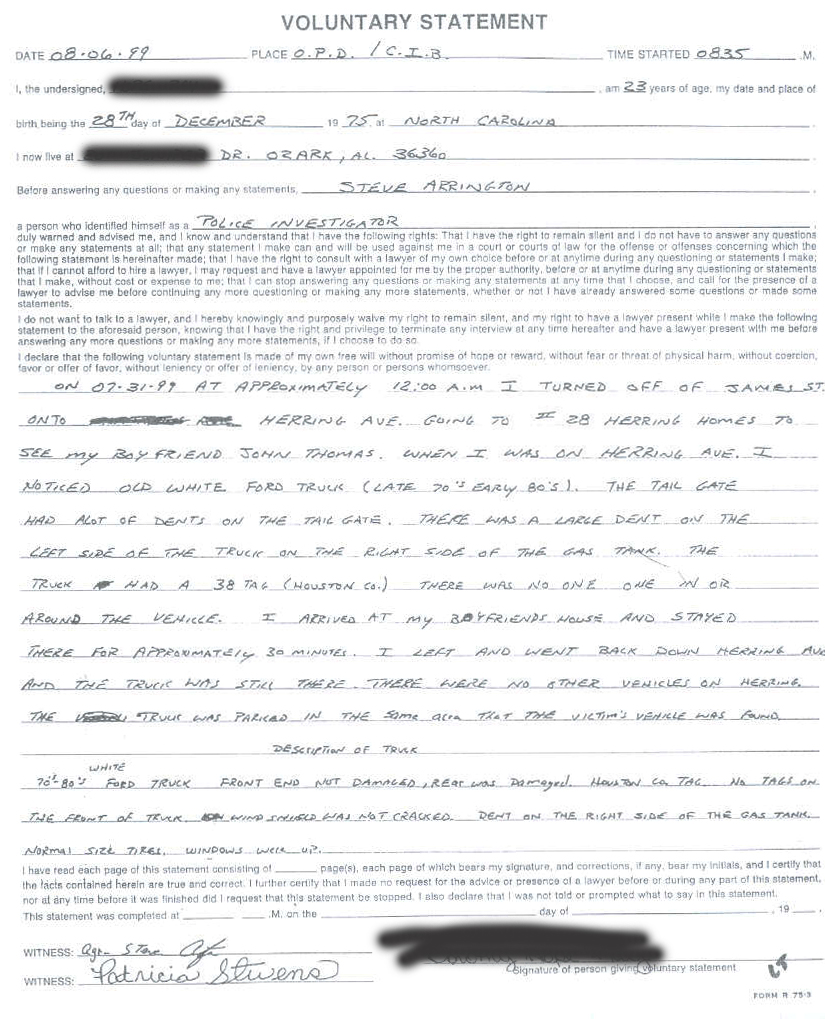 VOLUNTARY STATEMENT
DATE 08-06-99 PLACE O.P.D. / C.I.B. TIME STARTED 0835 .M.
I, the undersigned, , am 23 years of age, my date and place of
birth being the 28TH day of DECEMBER 19 75 at NORTH CAROLINA
I now live at DR. OZARK, AL. 36360
Before answering any questions or making any statements, STEVE ARRINGTON
a person who identified himself as a POLICE INVESTIGATOR
duly warned and advised me, and I know and understand that I have the following rights: That I have the right to remain silent and I do not have to answer any questions
or make any statements at all; that any statement I make can and will be used against me in a court or courts of law for the offense or offenses concerning which the
following statement is hereinafter made; that I have the right to consult with a lawyer of my own choice before or at anytime during any questioning or statements I make;
that if I cannot afford to hire a lawyer, I may request and have a lawyer appointed for me by the proper authority, before or at anytime during any questioning or statements
that I make, without cost or expense to me; that I can stop answering any questions or making any statements at any time that I choose, and call for the presence of a
lawyer to advise me before continuing any more questioning or making any more statements, whether or not I have already answered some questions or made some
statements.
I do not want to talk to a lawyer, and I hereby knowingly and purposely waive my right to remain silent, and my right to have a lawyer present while I make the following
statement to the aforesaid person, knowing that I have the right and privilege to terminate any interview at any time hereafter and have a lawyer present with me before
answering any more questions or making any more statements, if I choose to do so.
I declare that the following voluntary statement is made of my own free will without promise of hope or reward, without fear or threat of physical harm, without coercion,
favor or offer of favor, without leniency or offer of leniency, by any person or persons whomsoever.
ON 07-31-99 AT APPROXIMATELY 12:00 A.M I TURNED OFF OF JAMES ST.
ONTO HERRING AVE. GOING TO # 28 HERRING HOMES TO
SEE MY BOYFRIEND JOHN THOMAS. WHEN I WAS ON HERRING AVE. I
NOTICED OLD WHITE FORD TRUCK (LATE 70'S EARLY 80'S). THE TAIL GATE
HAD ALOT OF DENTS ON THE TAIL GATE. THERE WAS A LARGE DENT ON THE
LEFT SIDE OF THE TRUCK ON THE RIGHT SIDE OF THE GAS TANK. THE
TRUCK HAD A 38 TAG (HOUSTON CO.) THERE WAS NO ONE ONE IN OR
AROUND THE VEHICLE. I ARRIVED AT MY BOYFRIENDS HOUSE AND STAYED
THERE FOR APPROXIMATELY 30 MINUTES. I LEFT AND WENT BACK DOWN HERRING AVE
AND THE TRUCK WAS STILL THERE. THERE WERE NO OTHER VEHICLES ON HERRING.
THE TRUCK WAS PARKED IN THE SAME AREA THAT THE VICTIM'S VEHICLE WAS FOUND.
DESCRIPTION OF TRUCK
WHITE
70's-80's FORD TRUCK FRONT END NOT DAMAGED, REAR WAS DAMAGED. HOUSTON CO TAG. NO TAGS ON
THE FRONT OF TRUCK. WINDSHIELD WAS NOT CRACKED. DENT ON THE RIGHT SIDE OF THE GAS TANK.
NORMAL SIZE TIRES, WINDOWS WERE UP.
I have read each page of this statement consisting of page(s), each page of which bears my signature, and corrections, if any, bear my initials, and I certify that
the facts contained herein are true and correct. I further certify that I made no request for the advice or presence of a lawyer before or during any part of this statement,
nor at any time before it was finished did I request that this statement be stopped. I also declare that I was not told or prompted what to say in this statement.
This statement was completed at .M. on the day of , 19 .
WITNESS: Agt. Steve
WITNESS: Patricia Stevens
Signature of person giving voluntary statement
FORM R 75-3